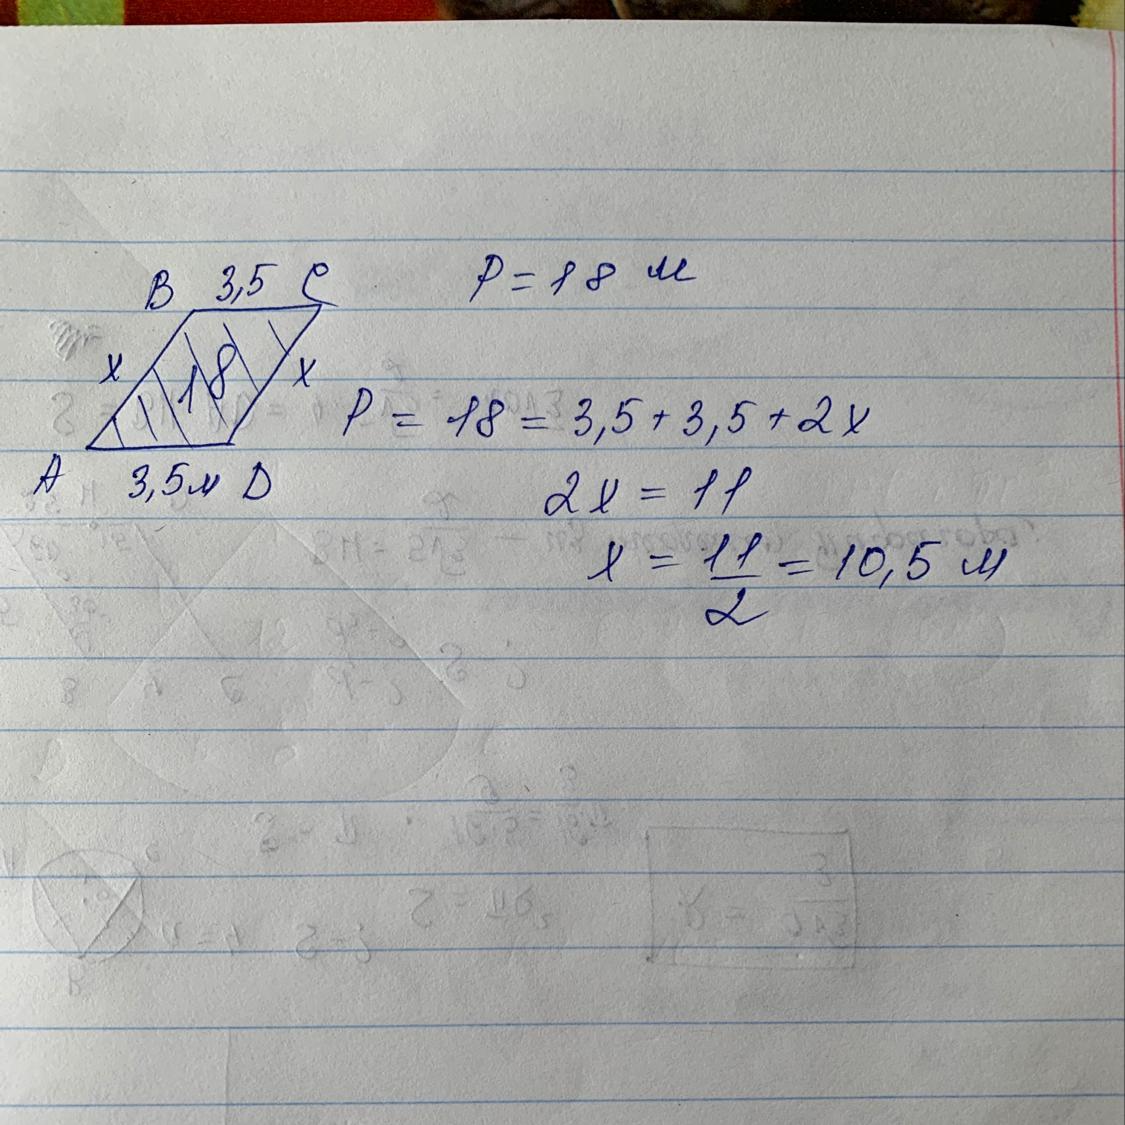 B 3,5 C
P = 18 м
x 18 x
P = 18 = 3,5 + 3,5 + 2x
A 3,5м D
2x = 11
x = 11/2 = 10,5 м